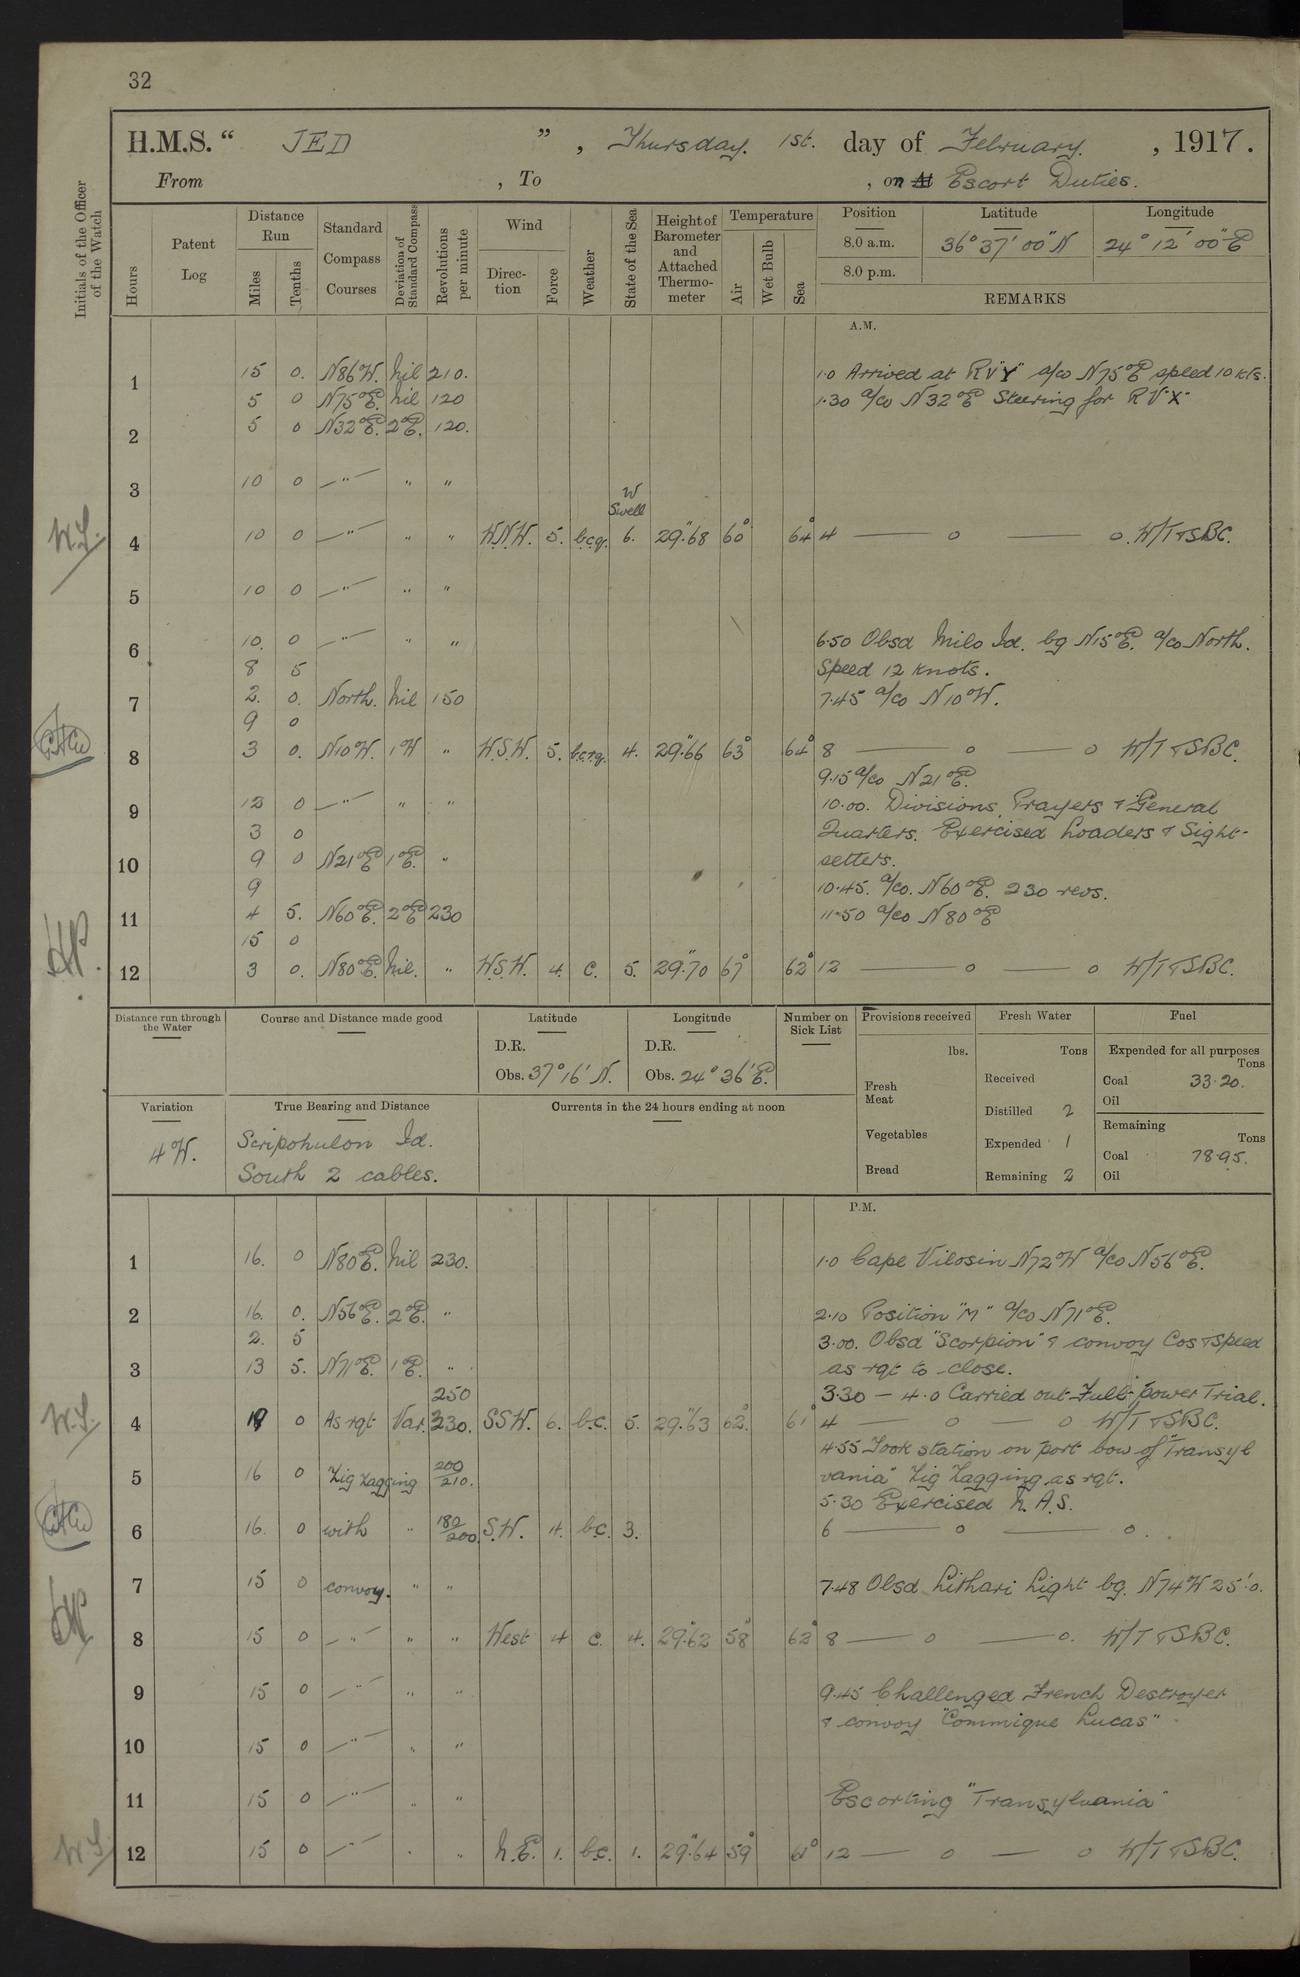 32
H.M.S. “ JED ” , Thursday. 1st. day of February. , 1917.
From , To , on At Escort Duties.
Initials of the Officer of the Watch
Hours
Patent Log
Distance Run
Miles
Tenths
Standard Compass Courses
Deviation of Standard Compass
Revolutions per minute
Wind
Direction
Force
Weather
State of the Sea
Height of Barometer and Attached Thermometer
Temperature
Air
Wet Bulb
Sea
Position Latitude Longitude
8.0 a.m. 36° 37' 00" N 24° 12' 00" E
8.0 p.m.
REMARKS
A.M.
1 15 0. N86°W. Nil 210. 1.0 Arrived at RV"Y" a/co N75°E speed 10 kts.
5 0 N75°E. Nil 120 1.30 a/co N32°E Steering for RV"X"
2 5 0 N32°E. 2°E. 120.
3 10 0 —"— " "
W Swell
W.S. 4 10 0 —"— " " W.N.W. 5. b.c.q. 6. 29".68 60° 64° 4 — o — o. W/T & SBC.
5 10 0 —"— " "
6 10. 0 —"— " " 6.50 Obsd Milo Id. bg N15°E. a/co North.
8 5 Speed 12 knots.
7 2. 0. North. Nil 150 7.45 a/co N10°W.
9 0
8 3 0. N10°W. 1°W " W.S.W. 5. b.c.r.q. 4. 29".66 63° 64° 8 — o — o W/T & SBC.
9.15 a/co N21°E.
9 12 0 —"— " " 10.00. Divisions, Prayers & General
3 0 Quarters. Exercised Loaders & Sight-
10 9 0 N21°E 1°E. " setters.
9 10.45. a/co. N60°E. 230 revs.
11 4 5. N60°E. 2°E 230 11.50 a/co N80°E
15 0
12 3 0. N80°E. Nil. " W.S.W. 4. C. 5. 29".70 67° 62° 12 — o — o W/T & SBC.
Distance run through the Water
Course and Distance made good
Latitude
D.R.
Obs. 37° 16' N.
Longitude
D.R.
Obs. 24° 36' E.
Number on Sick List
Provisions received
lbs.
Fresh Meat
Vegetables
Bread
Fresh Water
Tons
Received
Distilled 2
Expended 1
Remaining 2
Fuel
Expended for all purposes
Tons
Coal 33.20.
Oil
Remaining
Tons
Coal 78.95.
Oil
Variation
4°W.
True Bearing and Distance
Seripohulon Id.
South 2 cables.
Currents in the 24 hours ending at noon
P.M.
1 16. 0 N80°E. Nil 230. 1.0 Cape Vilosin N72°W a/co N56°E.
2 16. 0. N56°E. 2°E. " 2.10 Position "M" a/co N71°E.
2. 5 3.00. Obsd "Scorpion" & convoy Cos & speed
3 13 5. N71°E. 1°E. " as rqt to close.
250 3.30 – 4.0 Carried out Full power Trial.
W.S. 4 0 As rqt Var. 230. SSW. 6. b.c. 5. 29".63 62°. 61° 4 — o — o W/T & SBC.
4.55 Took station on port bow of "Transyl
5 16 0 Zig Zagging 200/210. vania" Zig Zagging as rqt.
5.30 Exercised N.A.S.
6 16. 0 with " 180/200. S.W. 4. b.c. 3. 6 — o — o.
7 15 0 convoy. " " 7.48 Obsd Lithari Light bg. N74°W 25'.0.
8 15 0 —"— " " West 4 C. 4. 29".62 58° 62° 8 — o — o. W/T & SBC.
9 15 0 —"— " " 9.45 Challenged French Destroyer
& convoy "Commique Lucas"
10 15 0 —"— " "
11 15 0 —"— " " Escorting "Transylvania"
W.S. 12 15 0 —"— " " N.E. 1. b.c. 1. 29".64 59° 61° 12 — o — o W/T & SBC.